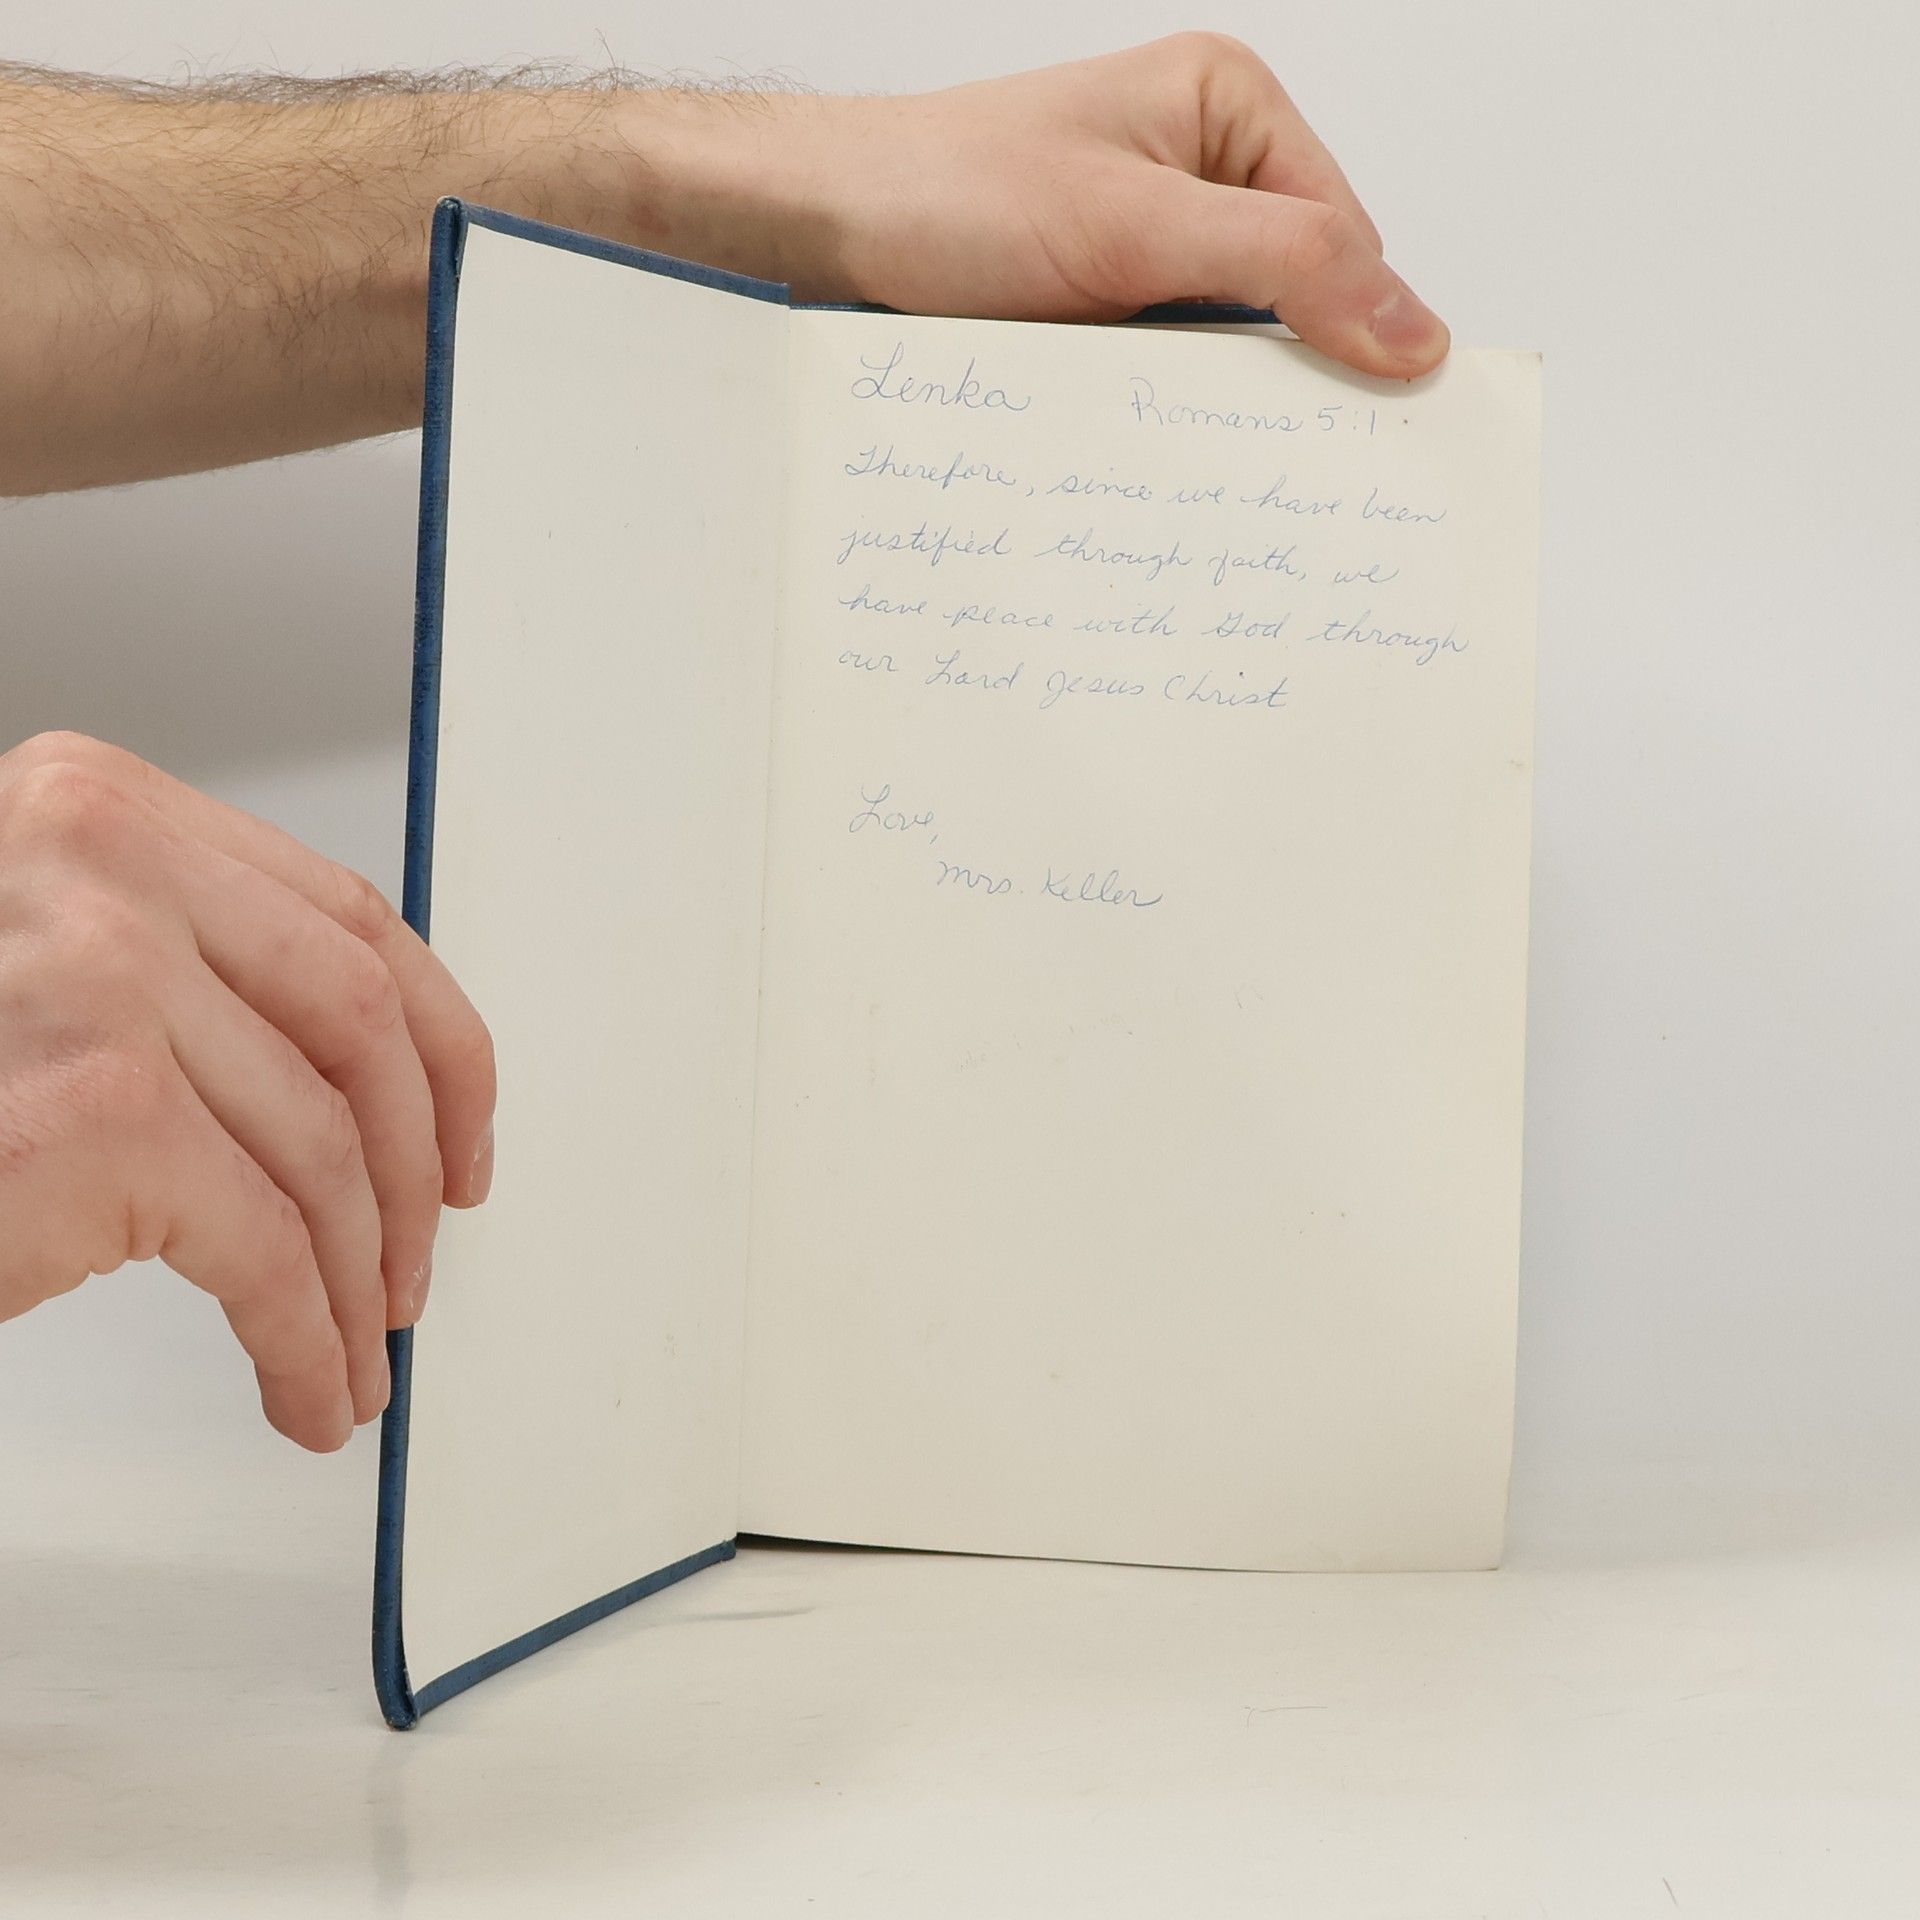 Lenka Romans 5:1
Therefore, since we have been
justified through faith, we
have peace with God through
our Lord Jesus Christ
Love,
Mrs. Keller